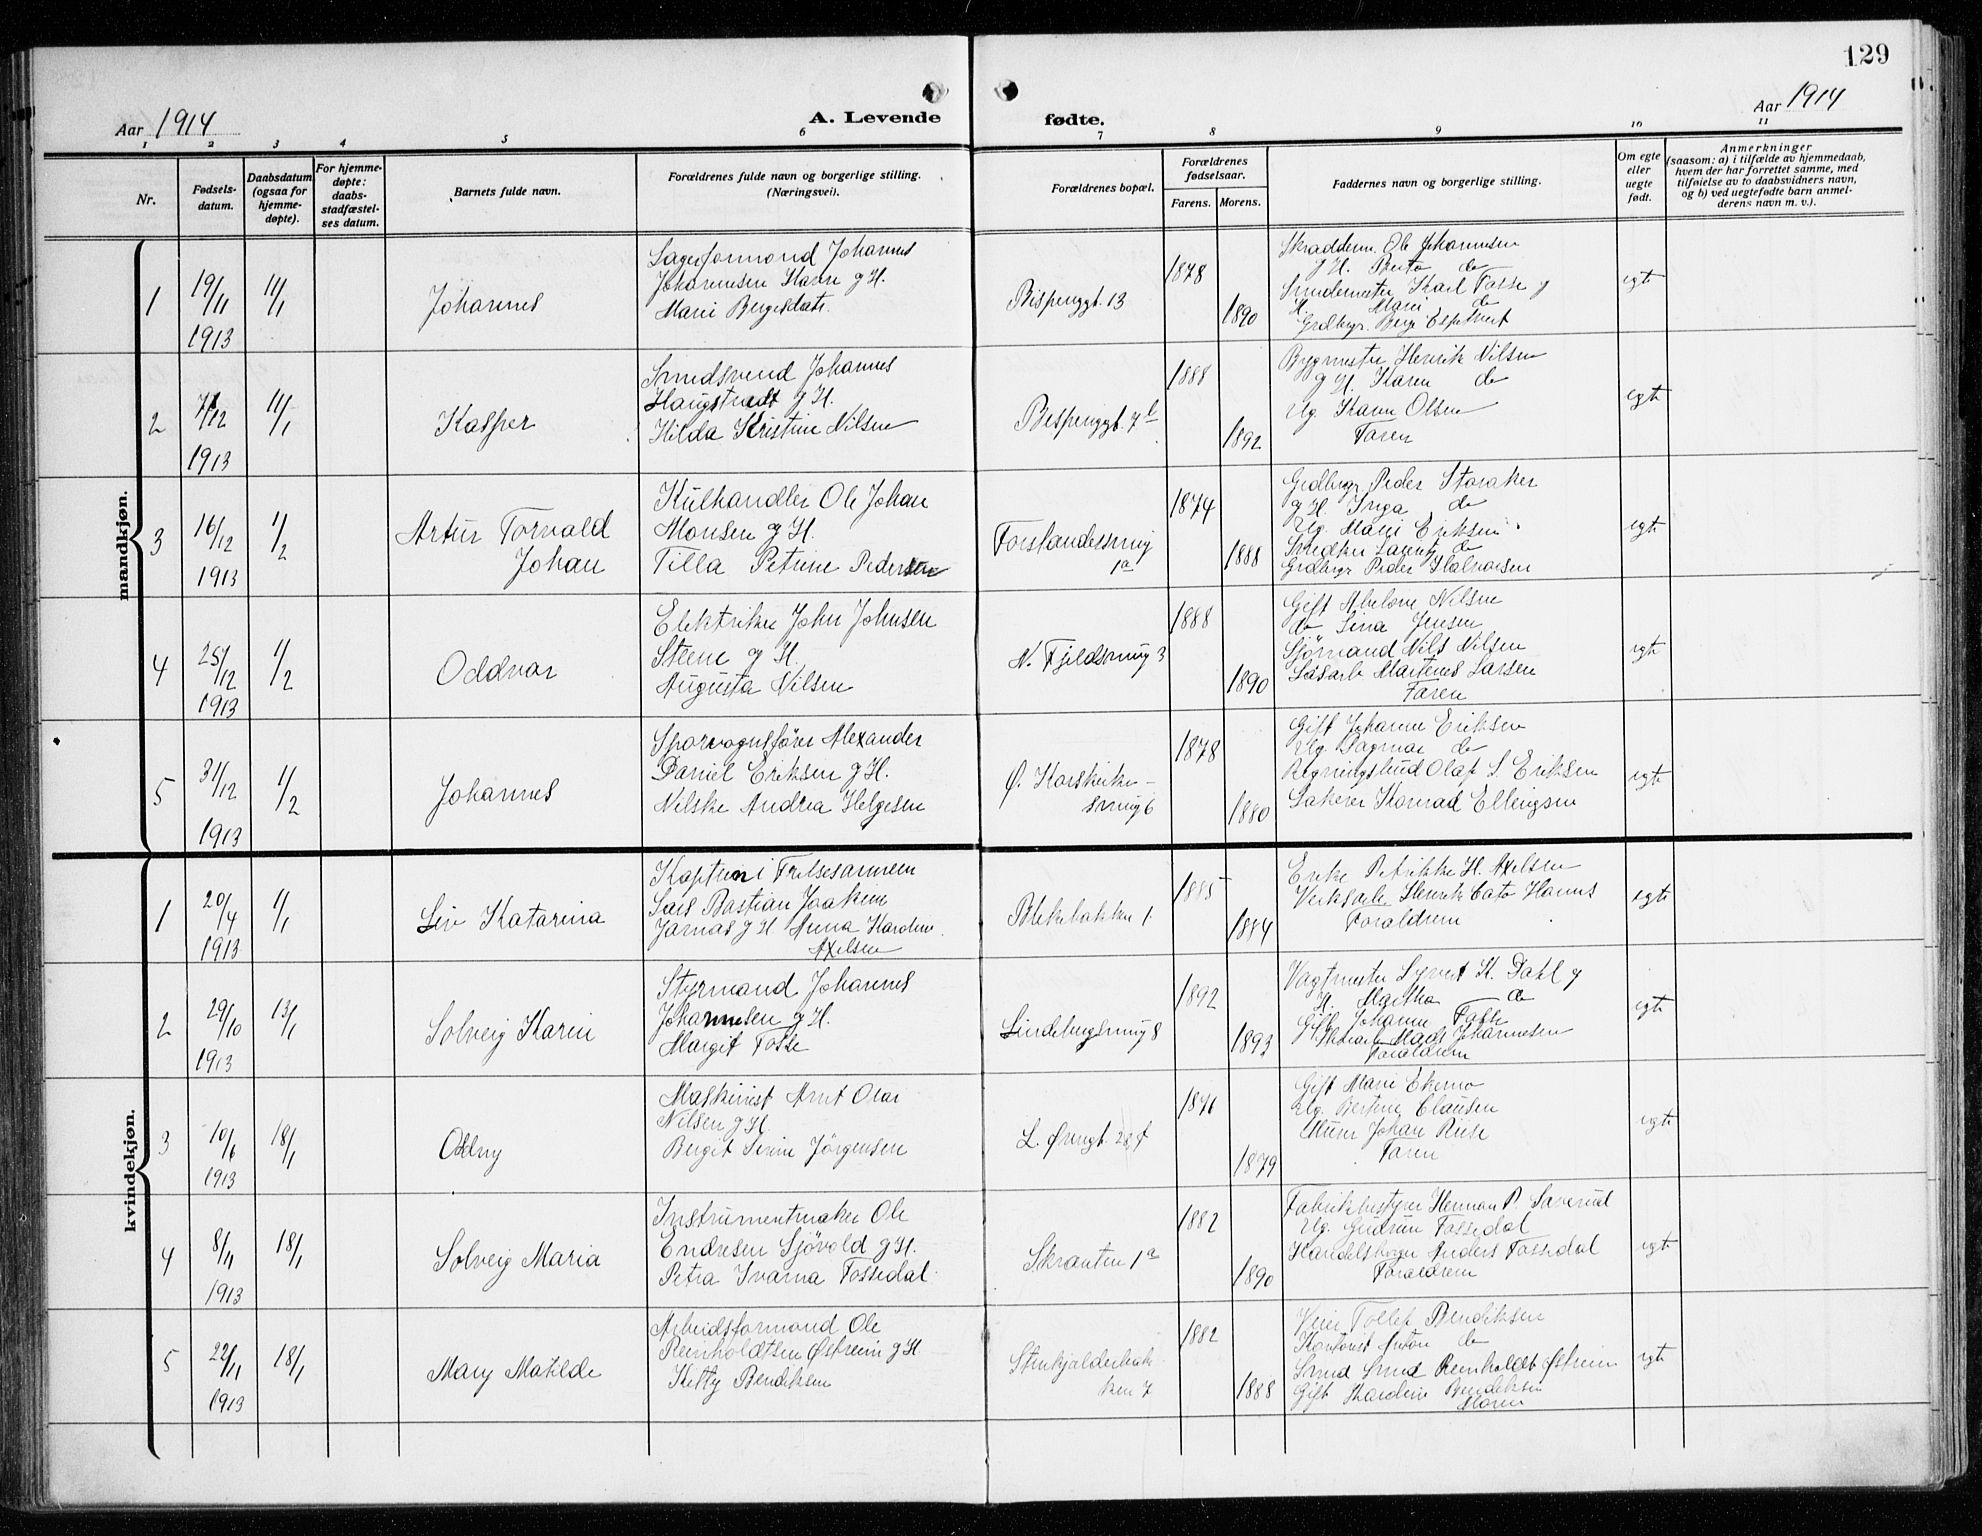 129
Aar 1914
A. Levende fødte.
Aar 1914
1 2 3 4 5 6 7 8 9 10 11
Nr.
Fødsels-
datum.
Daabsdatum
(ogsaa for
hjemme-
døpte).
For hjemme-
døpte:
daabs-
stadfæstel-
ses datum.
Barnets fulde navn.
Forældrenes fulde navn og borgerlige stilling.
(Næringsvei).
Forældrenes bopæl.
Forældrenes
fødselsaar.
Farens. Morens.
Faddernes navn og borgerlige stilling.
Om egte
eller
uegte
født.
Anmerkninger
(saasom: a) i tilfælde av hjemmedaab,
hvem der har forrettet samme, med
tilføielse av to daabsvidners navn,
og b) ved uegtefødte barn anmel-
derens navn m. v.).
mandkjøn.
1
19/11
1913
11/1
Johannes
Johannes
Johannesen g H.
Marie
Bispenggt. 13
1878
1890
Ole Johannesen
g H. Berta do
Karl Fosse g
H. Marie do
egte
2
/12
1913
11/1
Kasper
Smedsvend Johannes
g H.
Hilda Kristine Nilsen
Bispenggt. 7b
1888
1892
Bygmester Henrik Nilsen
g H. Karen do
Ug. Karen Olsen
Faren
egte
3
16/12
1913
1/2
Artur Torvald
Johan
Kulhandler Ole Johan
Monsen g H.
Tilla Petrine Pedersen
Forstandersmug
1a
1874
1888
Grdbrgr Peder Storaker
g H. Inga do
Ug. Marie Eriksen
do
Grdbrgr Peder Halvorsen
egte
4
25/12
1913
1/2
Oddvar
Elektriker John Johnsen
Steene g H.
Augusta Nilsen
N. Fjeldsmug 3
1888
1890
Gift Abelone Nilsen
do Lina Jensen
Sjömand Nils Nilsen
Martenes Larsen
Faren
egte
5
31/12
1913
1/2
Johannes
Sporvognsfører Alexander
Daniel Eriksen g H.
Nilske Andrea Helgesen
Ø. Korskirke-
smug 6
1878
1880
Gift Johanne Eriksen
Ug. Dagmar do
Regningsbud Olaf S. Eriksen
Konrad Ellingsen
egte
kvindekjøn.
1
20/4
1913
1/1
Liv Katarina
Kaptein i Frelsesarmeen
Lars Bastian Joakim
Jarnas g H. Anna Kardine
Axelsen
Blekebakken 1.
1885
1884
Enke Petrikke H. Axelsen
Henrik Cato Hannes
Forældrene
egte
2
29/10
1913
13/1
Solveig Karin
Styrmand Johannes
Johannesen g H.
Margit Fosse
Lindebergsmug 8
1892
1893
Vagtmester Syvert K. Dahl g
H. Martha do
Gift Johanne Fosse
Mads Johannesen
Forældrene
egte
3
10/6
1913
18/1
Oddny
Maskinist Arnt Olai
Nilsen g H.
Berget Serine Jörgensen
L. Øvregt. 28
1876
1879
Gift Marie Ekerno
Ug. Bertine Clausen
Murer Johan Riise
Faren
egte
4
8/11
1913
18/1
Solveig Maria
Instrumentmaker Ole
Endresen Sjövold g H.
Petra Ivarna Fossedal
Skranten 1a
1882
1890
Fabrikbestyrer Herman P. Saverud
Ug. Gudrun Fossedal
Anders Fossedal
Forældrene
egte
5
22/11
1913
18/1
Mary Matilde
Arbeidsformand Ole
Reinholdtsen Østrein g H.
Kitty Bendiksen
Stenkjelderbak-
ken 7
1882
1888
Tollef Bendiksen
Kontorist Anton do
Smed Reinholdt Østrein
Gift Kardine Bendiksen
Moren
egte